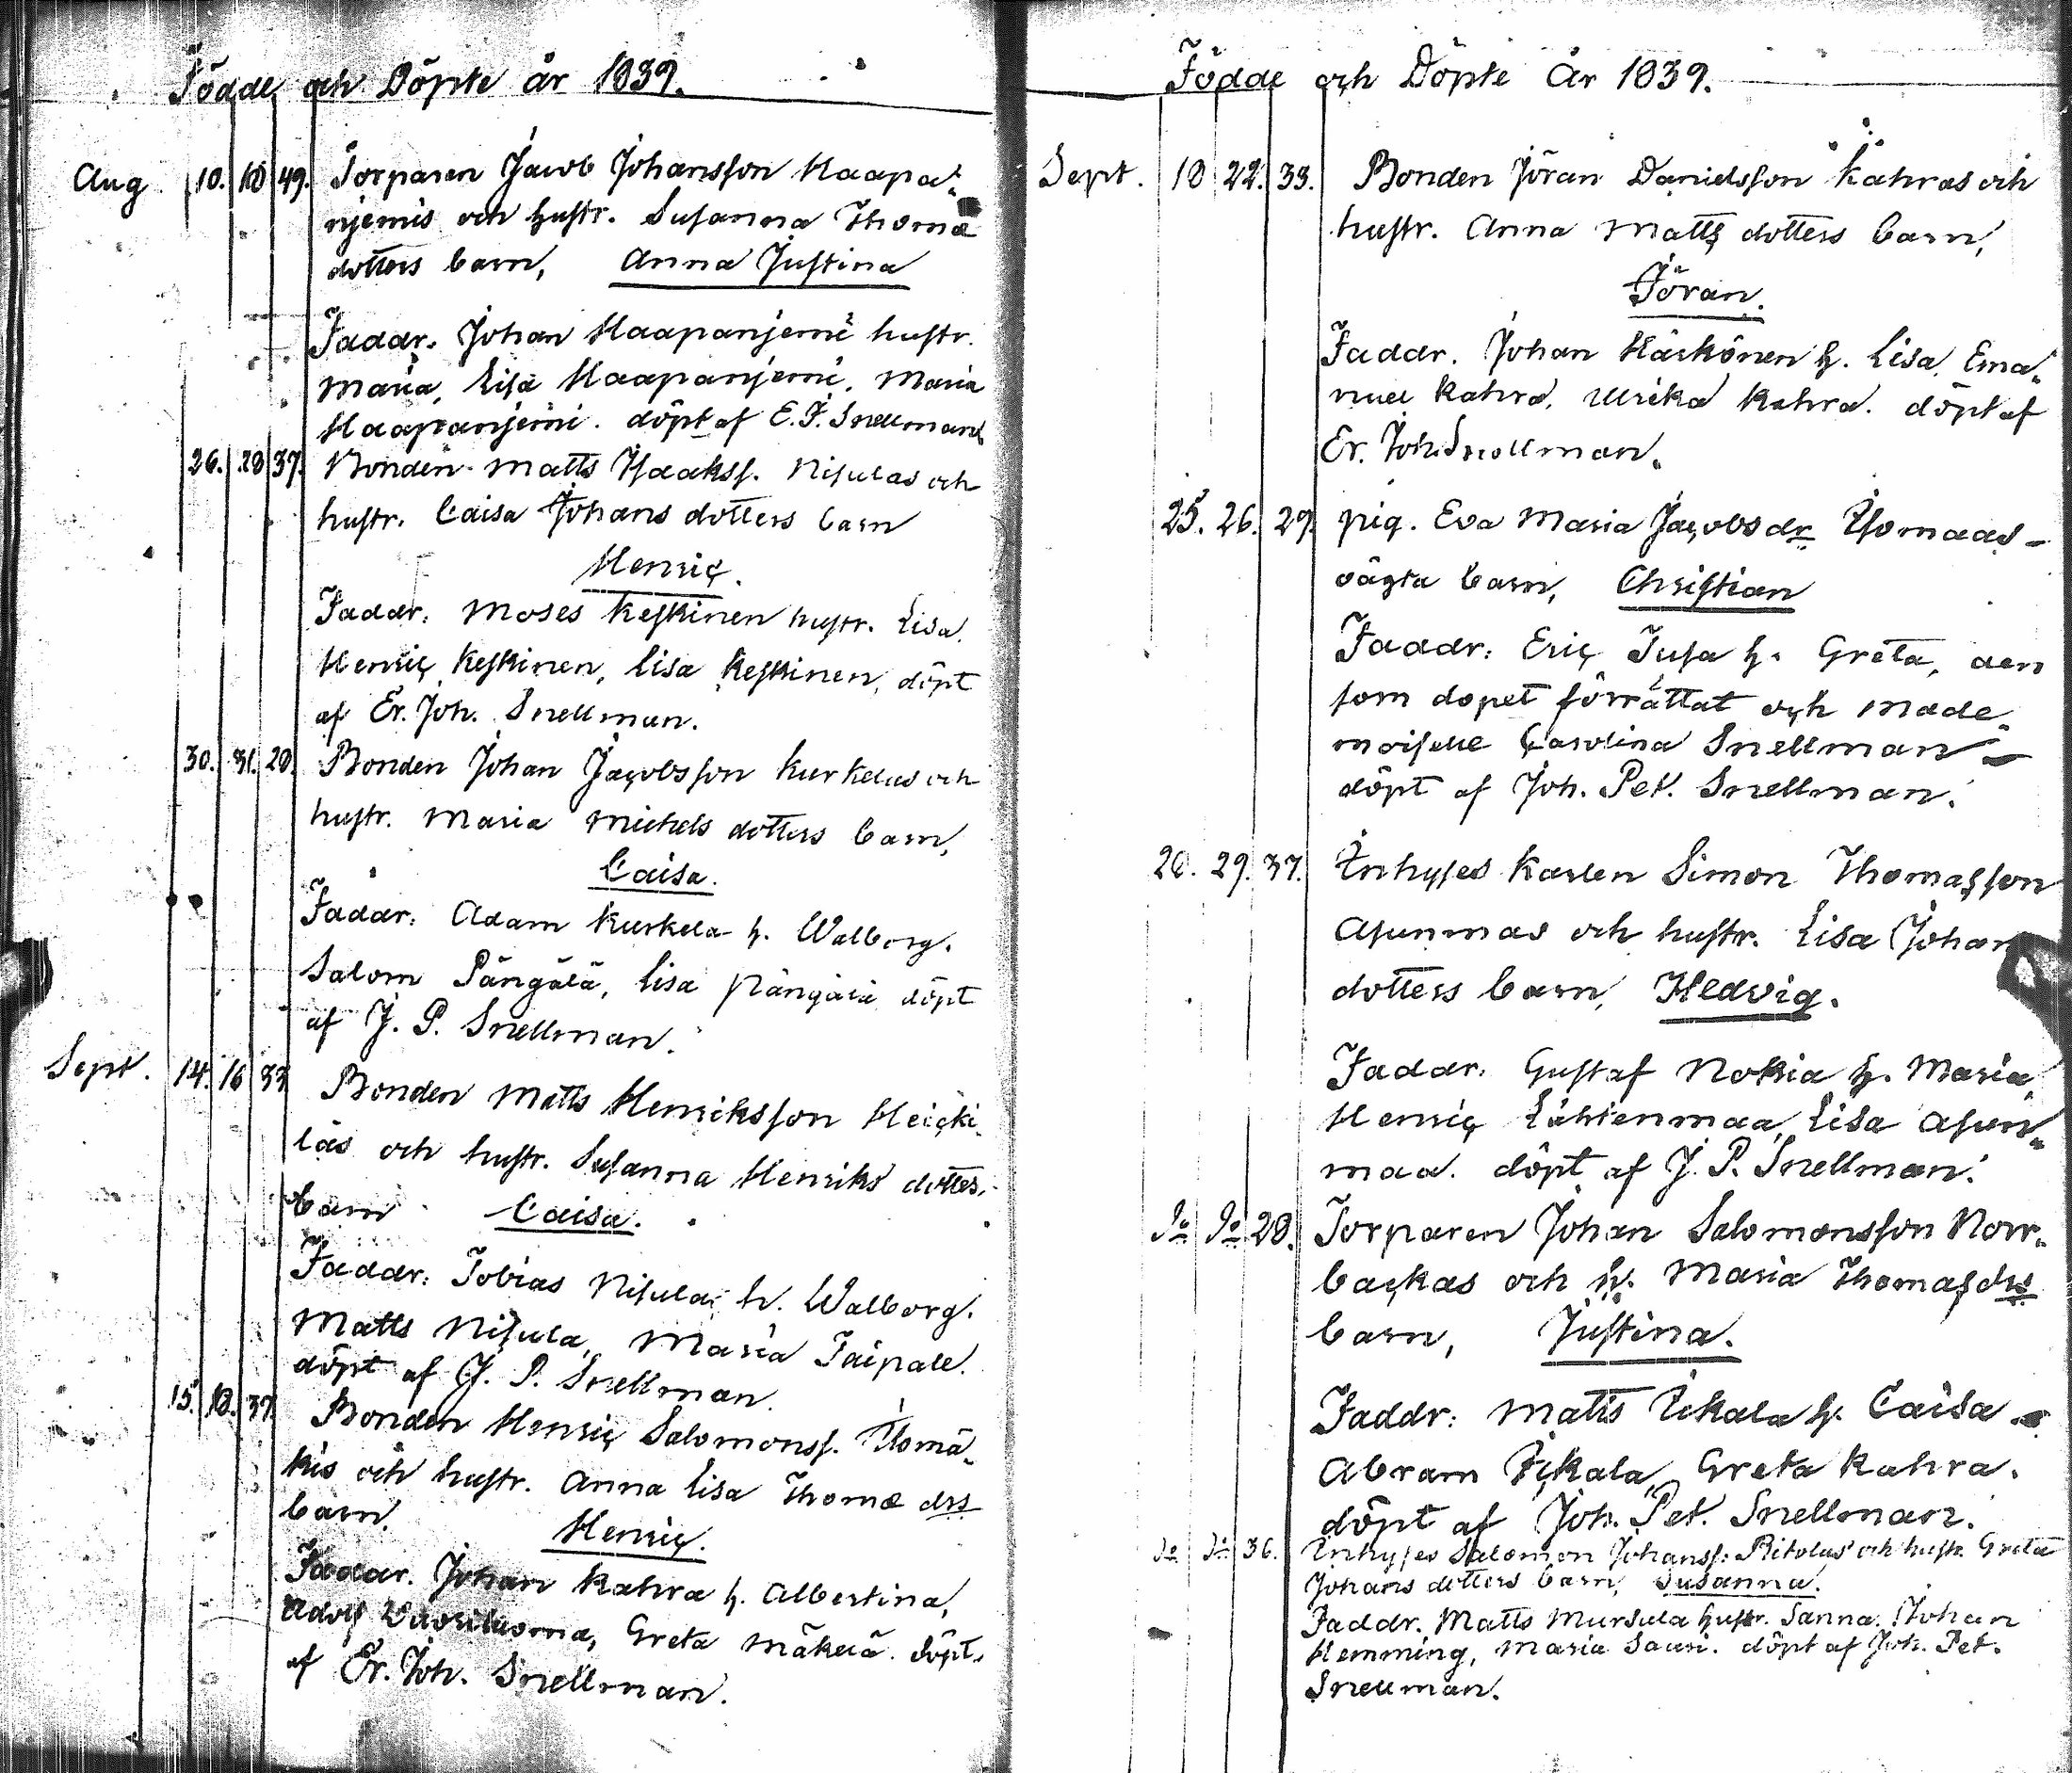 Födde och Döpte år 1839.
Aug 10. 18 49. Torparen Jacob Johansson Haapa-
njemis och hustr. Susanna Thomæ
dotters barn, Anna Justina
Faddr. Johan Haapanjemi hustr.
Maria, Lisa Haapanjemi, Maria
Haapanjemi. döpt af E. J. Snellman
26. 28 37. Bonden Matts Isaakss. Nisulas och
hustr. Caisa Johans dotters barn
Henric.
Faddr: Moses Keskinen hustr. Lisa.
Henric Keskinen, Lisa Keskinen, döpt
af Er. Joh. Snellman.
30. 31. 28. Bonden Johan Jacobsson Kurkelas och
hustr. Maria Michels dotters barn,
Caisa.
Faddr: Adam Kurkela h. Walborg.
Salom Pängälä, Lisa Pängälä döpt
af J. P. Snellman.
Sept. 14. 16 33 Bonden Matts Henriksson Heicki-
läs och hustr. Susanna Henriks dotters
barn Caisa.
Faddr: Tobias Nisula h. Walborg.
Matts Nisula, Maria Taipale.
döpt af J. P. Snellman.
15. 18. 37. Bonden Henric Salomonss. Isomä-
kis och hustr. Anna Lisa Thomæ drs
barn. Henric.
Faddr. Johan Kahra h. Albertina,
Adolf Wuoriluoma, Greta Mäkelä. döpt.
af Er. Joh. Snellman.
Födde och Döpte År 1839.
Sept. 18 22. 33. Bonden Jöran Danielsson Kahras och
hustr. Anna Matts dotters barn,
Jöran.
Faddr. Johan Härkönen h. Lisa, Ema-
nuel Kahra, Ulrika Kahra. döpt af
Er. Joh. Snellman.
25. 26. 29. pig. Eva Maria Jacobs dr Isomaas
oägta barn, Christian
Faddr: Eric Jusa h. Greta, den
som dopet förrättat och made-
moiselle Carolina Snellman
döpt af Joh. Pet. Snellman.
28. 29. 37. Inhyses Karlen Simon Thomasson
Asunmas och hustr. Lisa Johan
dotters barn, Hedvig.
Faddr. Gustaf Nokia h. Maria,
Henric Lähtenmaa, Lisa Asun-
maa. döpt af J. P. Snellman.
Do Do 28. Torparen Johan Salomonsson Norr-
backas och h. Maria Thomas drs
barn, Justina.
Faddr: Matts Ickala h. Caisa
Abram Ickala, Greta Kahra.
döpt af Joh. Pet. Snellman.
Do Do 36. Inhyses Salomon Johanss: Ritolas och hustr. Greta
Johans dotters barn, Susanna.
Faddr. Matts Mursula hustr. Sanna. Johan
Hemming, Maria Sauri. döpt af Joh. Pet.
Snellman.